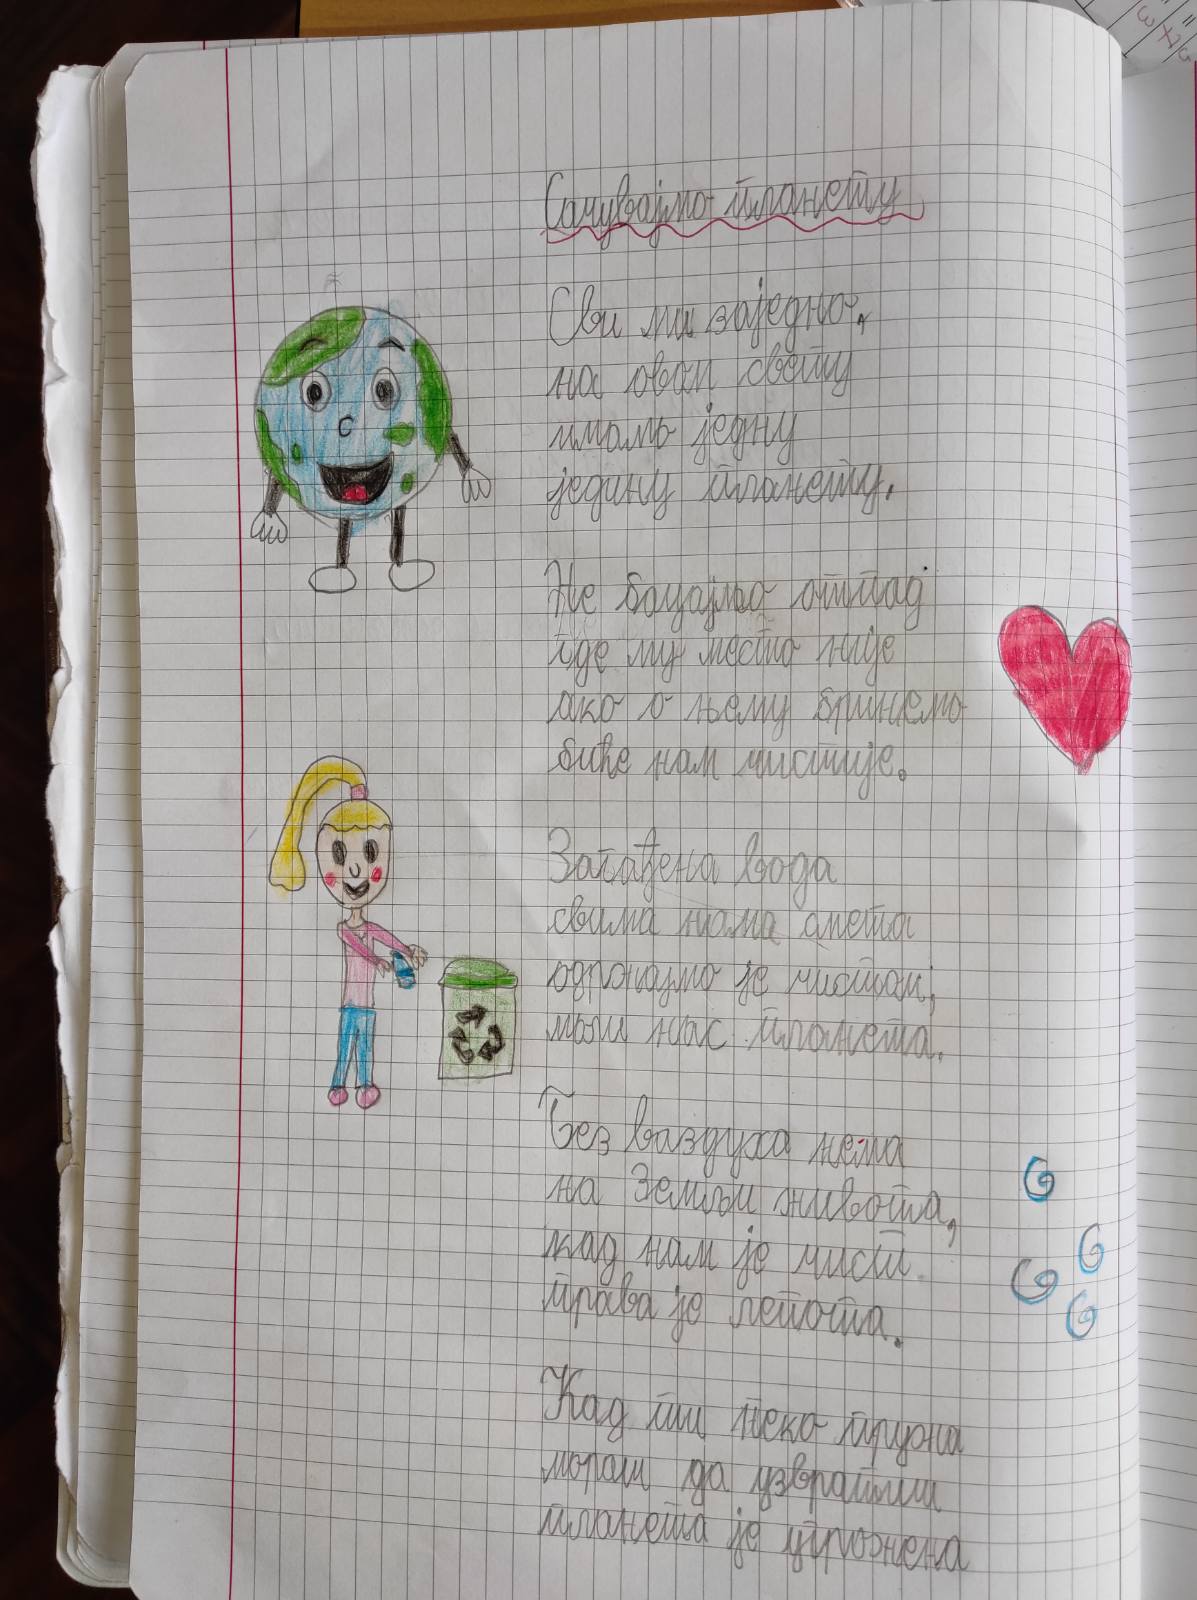 Сачувајмо планету
Сви ми заједно,
на овом свету
имамо једну
једину планету.
Не бацајмо отпад
где му место није
ако о њему бринемо
биће нам чистије.
Загађена вода
свима нама смета
одржавајмо је чистом,
моли нас планета.
Без ваздуха нема
на Земљи живота,
кад нам је чист
права је лепота.
Кад ти неко пружа
мораш да узвратиш
планета је угрожена